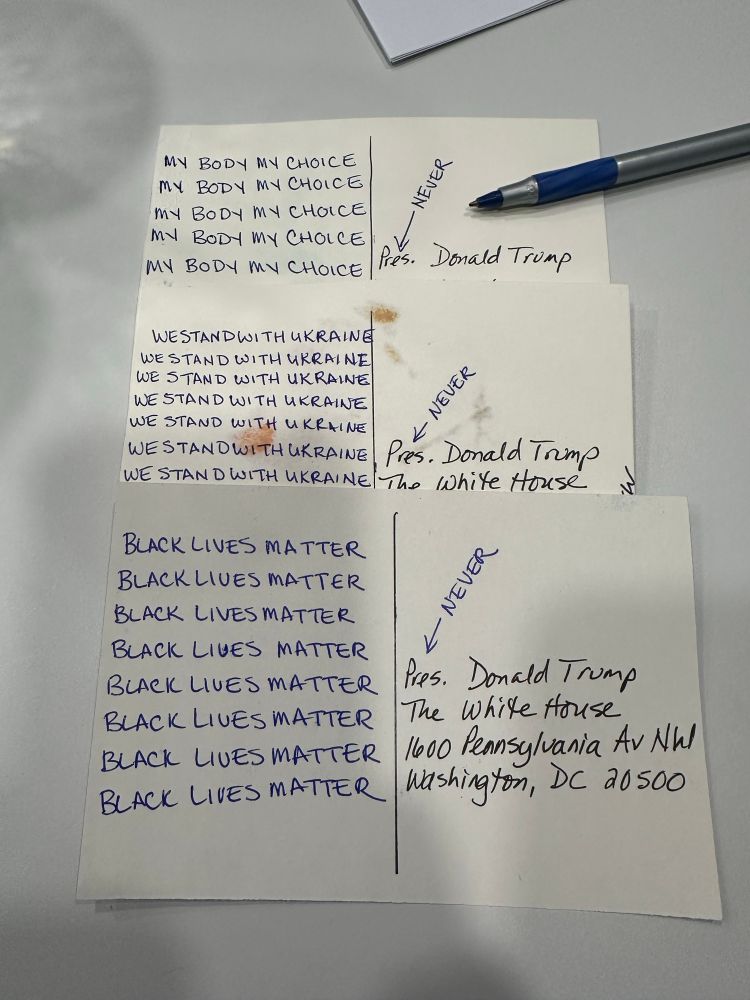 MY BODY MY CHOICE
MY BODY MY CHOICE
MY BODY MY CHOICE
MY BODY MY CHOICE
MY BODY MY CHOICE
NEVER
Pres. Donald Trump
WE STAND WITH UKRAINE
WE STAND WITH UKRAINE
WE STAND WITH UKRAINE
WE STAND WITH UKRAINE
WE STAND WITH UKRAINE
WE STAND WITH UKRAINE
WE STAND WITH UKRAINE
NEVER
Pres. Donald Trump
The White House
BLACK LIVES MATTER
BLACK LIVES MATTER
BLACK LIVES MATTER
BLACK LIVES MATTER
BLACK LIVES MATTER
BLACK LIVES MATTER
BLACK LIVES MATTER
BLACK LIVES MATTER
NEVER
Pres. Donald Trump
The White House
1600 Pennsylvania Av NW
Washington, DC 20500